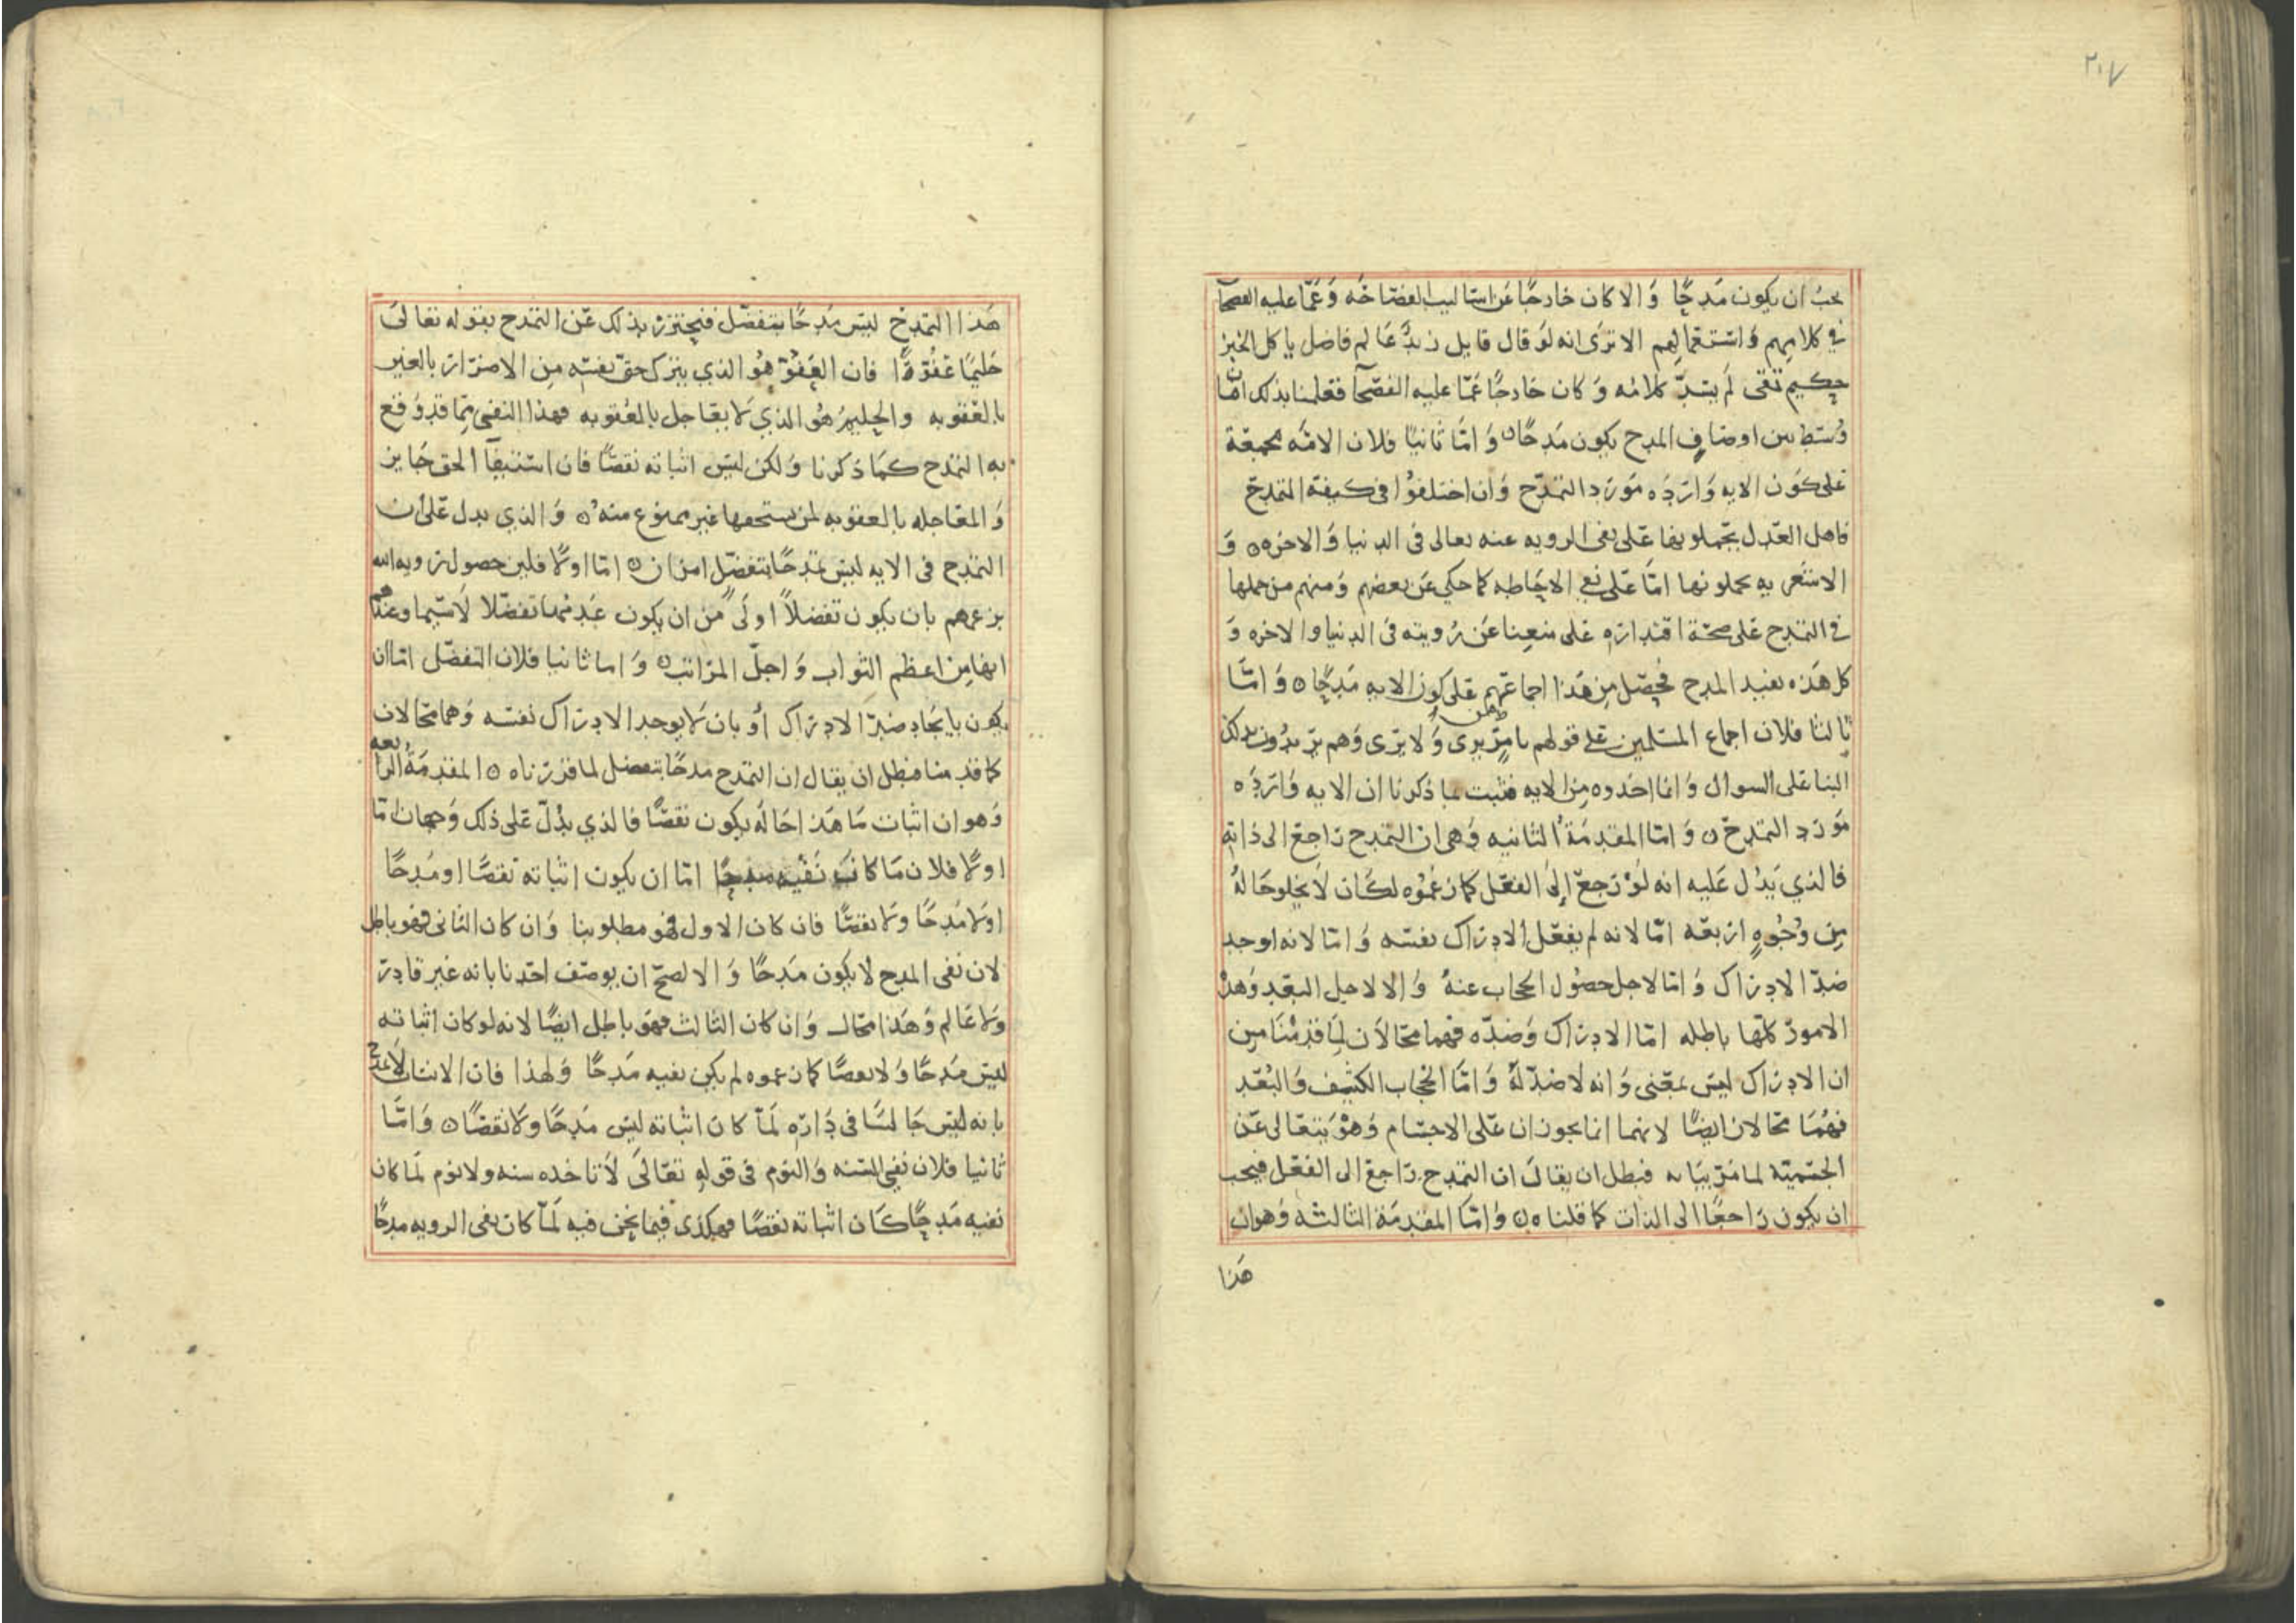 ٢٠٧
يجب ان يكون مَدحًا وَالا كان خارجًا عَن اسَاليب الفصَاحَه وَعَمّا عليه الفصحآ
في كلامهم وَاسْتعمالِهم الا ترَى انه لوَ قال قايل زيدٌ عَالم فاضل ياكل الخبز
حكيم تقى لم يسَدّ كلامُه وَكان خارجًا عَمّا عليه الفصحآ فعلمنا بذلك ان مَا
وُسّط بين اوصَافِ المدح يكون مَدحًا ۞ وَامَّا ثانيًا فلان الامَّه مجمعَة
عَلى كوَن الايه وَاردَه مَوَرد التمدّح وَان اختلفوُا فى كيفيَّة التمدح
فاهل العَدل يحَملونها عَلى نفى الرويه عنه تعالى فى الدنيا وَالاخره ۞ وَ
الاشعَريه يحملونها امّا عَلى نفي الاحَاطه كما حكي عَن بعضهم وَمنهم من حملها
في التمدح عَلى صحّة اقتدارَه عَلى منعِنا عَن رُويته فى الدنيا والاخره وَ
كل هَذه يفيد المدح فحصَل من هَذا اجماعَهم عَلى كون الايه مَدحًا ۞ وَامَّا
ثالثا فلان اجماع المسَلمين عَلى قولهم يا مَن يرى وَلا يرَى وَهم يرَيدُون بذلك
الثنا عَلى السوال وَانما اخَدوه مِن الايه فثبت بما ذكرنا ان الايه وَاردَه
مَوَرد التمدح ۞ وَامّا المقدمَةُ الثانيه وَهى ان التمدح رَاجعَ الى ذاته
فالذي يَدُل عَليه انه لوَ رَجعَ إِلىَ الفعَل كما زعمُوه لكَان لَا يخلوحَالهُ
مِن وُجُوهٍ اربعَه امّا لانه لم يفعَل الادرَاك نفسَه وَامّا لانه اوجد
ضدّ الادرَاك وَامّا لاجل حصُول الحجاب عنهُ وَالا لاجل البعَد وَهذه
الامورَ كلّها باطله امّا الادرَاك وَضدّه فهما محَالاَن لِمَا قدمْنَا مِن
ان الادرَاك ليسَ بمعَنى وَانه لا ضدّ لهُ وَامَّا الحجَاب الكثيف وَالبُعَد
فهُمَا محَالان ايضًا لانهما انما يجوزان عَلى الاجسَام وَهوَ يتعَالى عَن
الجسَميّة لما مرَ بيَانه فبطل ان يقالَ ان التمدح رَاجع الى الفعَل فيجب
ان يكون رَاجعًا الى الذات كما قلناه ۞ وَامّا المقدمَة الثالثه وَهو ان
هَذا
هَذا التمَدحَ ليسَ مَدحًا بتفضّل فنحترز بذلك عَن التمَدح بقوله تعَالىَ
حَليمًا غفُورًَا فان العَفوَ هوُ الذي يترك حق نفسَه مِن الاضرَار بالغير
بالعقوبه والحِليمُ هُوُ الذي لَا يعَاجل بالعقوبه فهذا النفى مِمّا قد وَقع
به التمدح كمَا ذكرنا وَلكن ليَس اثباته نقصًا فان استيفآ الحق جَايز
وَالمعَاجله بالعقوبه لمن يستحقها غير ممنوع منه ۞ وَالذي يدل عَلىَ ان
التمدح فى الايه ليسَ تمدحًا بتفضّل امرَان ۞ امّا اولًا فلين حصول رَويه الله
بزعمهم بان يكون تفضلاً اولَى مَن ان يكون عَدمها تفضّلا لَا سَيما وعندهم
انها مِن اعظم الثوَاب وَاجلّ المرَاتب ۞ وَاما ثانيا فلان التفضّل امّا ان
يكون بايجَاد ضدّ الادرَاك أو بان لَا يوجد الادرَاك نفسَه وَهما محَالان
كما قدمنا فبطل ان يقال ان التمدح مدحًا بتفضل لما قررَناه ۞ المقدمَةُ الرابعه
وَهو ان اثبات مَا هَذا حَالُه يكون نقصًا فالذي يدُلّ عَلى ذلك وَجهان امّا
اولًا فلان مَا كانَ نَفيه مدحًا امّا ان يكون اثباته نقصًا او مَدحًا
اولا مَدحًا ولا نقصًا فان كان الاول فهو مطلوبنا وَان كان الثانى فهو باطل
لان نفى المدح لا يكون مَدحًا وَالا لصحّ ان يوصَف احَدنا بانه غير قادرَ
ولا عَالم وَهَذا محَال وَان كان الثالث فهوَ باطل ايضًا لانه لوكان اثباته
ليسَ مَدحًا وَلا نقصًا كما زعموه لم يكن نفيه مَدحًا وَلهذا فان الانسان لا يمدح
بانه ليسَ جَالسًا فى دَارَه لَمّا كان اثباته ليسَ مَدحًا ولَا نقصًا ۞ وَامَّا
ثانيا فلان نفى السَنه وَالنوم فى قوله تعَالىَ لَا تاخذه سنه ولا نوم لَما كان
نفيه مَدحًا كَان اثباته نقصًا فهكذى فيما نحَن فيه لَمّا كان نفى الرويه مدحًا